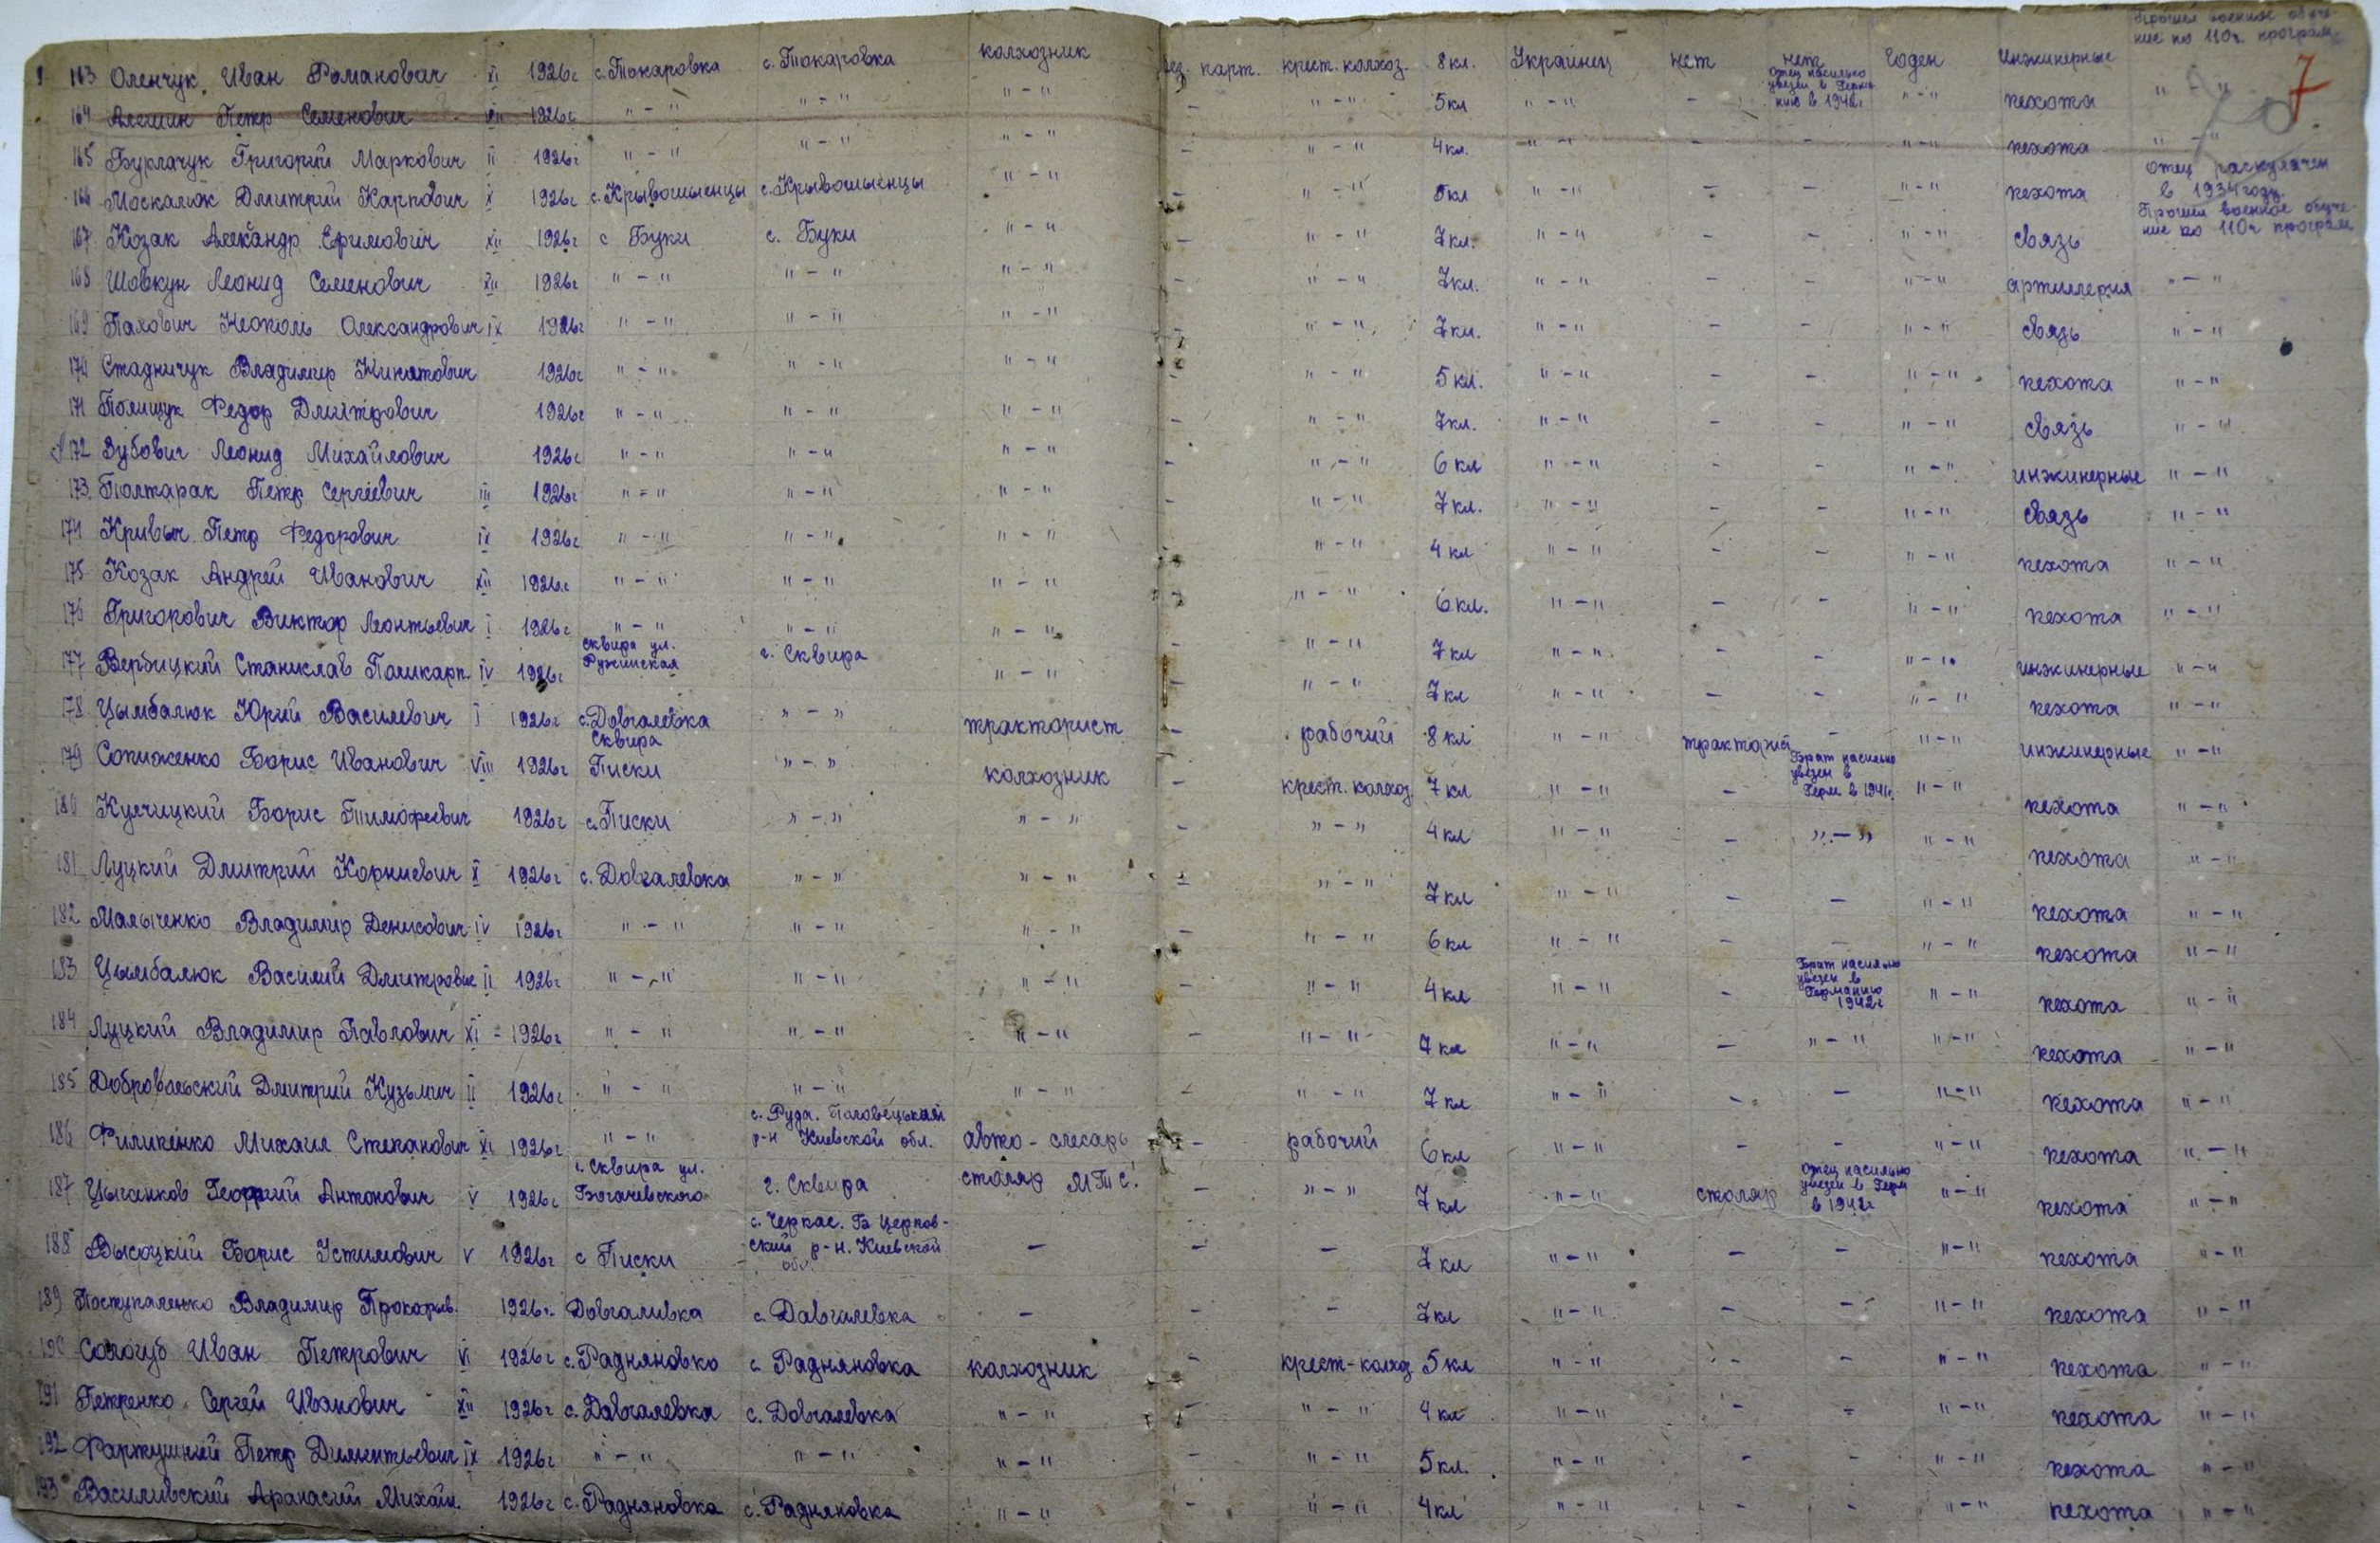 163 Оленчук Иван Романович XI 1926г с.Токаровка с.Токаровка колхозник без. парт. крест. колхоз. 8 кл. Украинец нет нет годен Инжинерные Прошел военное обуче-
ние по 110ч. програм.
7
164 Алешин Петр Семенович VII 1926г "-" "-" "-" - "-" 5кл "-" - Отец насильно
увезен в Герма-
нию в 1942г "-" пехота "-"
165 Бурлачук Григорий Маркович II 1926г "-" "-" "-" - "-" 4кл. "-" - - "-" пехота "-"
166 Москалюк Дмитрий Карпович X 1926г с.Крывошыенцы с.Крывошыенцы "-" - "-" 5кл "-" - - "-" пехота отец раскулачен
в 1934 году.
167 Козак Александр Ефимович XII 1926г с Буки с. Буки "-" - "-" 7кл. "-" - - "-" связь Прошел военное обуче-
ние по 110ч програм
168 Шовкун Леонид Семенович XII 1926г "-" "-" "-" - "-" 7кл. "-" - - "-" артиллерия "-"
169 Олександрович IX 1926г "-" "-" "-" - "-" 7кл. "-" - - "-" связь "-"
170 Стадничук Владимир 1926г "-" "-" "-" - "-" 5кл. "-" - - "-" пехота "-"
171 Полищук Федор Дмитрович 1926г "-" "-" "-" - "-" 7кл. "-" - - "-" связь "-"
172 Зубович Леонид Михайлович 1926г "-" "-" "-" - "-" 6 кл "-" - - "-" инжинерные "-"
173. Полтарак Петр Сергеевич III 1926г "-" "-" "-" - "-" 7кл. "-" - - "-" связь "-"
174 Кривыч Петр Федорович IX 1926г "-" "-" "-" - "-" 4 кл "-" - - "-" пехота "-"
175 Козак Андрей Иванович XII 1926г "-" "-" "-" - "-" 6кл. "-" - - "-" пехота "-"
176 Григорович Виктор Леонтьевич I 1926г "-" "-" "-" - "-" 7кл "-" - - "-" инжинерные "-"
177 Вербицкий Станислав Поликарп. IV 1926г Сквира ул.
Ружинская г. Сквира "-" - "-" 7кл "-" - - "-" пехота "-"
178 Цымбалюк Юрий Василевич I 1926г с.Довгалевка "-" тракторист - рабочий 8 кл "-" - "-" инжинерные "-"
179 Сопиженко Борис Иванович VIII 1926г Сквира
Писки "-" колхозник - крест. колхоз. 7 кл "-" - Брат насильно
увезен в
Герм в 1941г. "-" пехота "-"
180 Кулчицкий Борис Тимофеевич 1926г с.Писки "-" "-" - "-" 4кл "-" - "-" "-" пехота "-"
181 Луцкий Дмитрий Корниевич X 1926г с. Довгалевка "-" "-" - "-" 7кл "-" - - "-" пехота "-"
182 Малыченко Владимир Денисович IV 1926г "-" "-" "-" - "-" 6 кл "-" - - "-" пехота "-"
183 Цымбалюк Василий Дмитрович II 1926г "-" "-" "-" - "-" 4кл "-" - Брат насильно
увезен в
Германию
1942г "-" пехота "-"
184 Луцкий Владимир Павлович XI - 1926г "-" "-" "-" - "-" 7кл "-" - "-" "-" пехота "-"
185 Добровольский Дмитрий Кузьмич II 1926г "-" "-" "-" - "-" 7кл "-" - - "-" пехота "-"
186 Филипенко Михаил Степанович XI 1926г "-" с. Руда. Половецький
р-н Киевской обл. авто - слесарь - рабочий 6кл "-" - - "-" пехота "-"
187 Цыганков Георгий Антонович V 1926г г. Сквира ул.
Богачевского г. Сквира столяр МТС. - "-" 7кл "-" столяр Отец насильно
увезен в Герм
в 1942г "-" пехота "-"
188 Высоцкий Борис Устимович V 1926г с Писки с. Черкас. Б Церков-
ский р-н. Киевской
обл. - - - 7кл "-" - - "-" пехота "-"
189 Поступаленко Владимир Прокофьев. 1926г. Довгаливка с. Довгалевка - - - 7кл "-" - - "-" пехота "-"
190 Сологуб Иван Петрович VI 1926г с.Радняновко с Радняновка колхозник - крест-колхоз 5 кл "-" - - "-" пехота "-"
191 Петренко Сергей Иванович XII 1926г с. Довгалевка с. Довгалевка "-" - "-" 4кл "-" - - "-" пехота "-"
192 Фартушний Петр IX 1926г "-" "-" "-" - "-" 5кл. "-" - - "-" пехота "-"
193 Василивский Афанасий Михайл. 1926г с.Радняновка с.Радняновка "-" - "-" 4кл "-" - - "-" пехота "-"